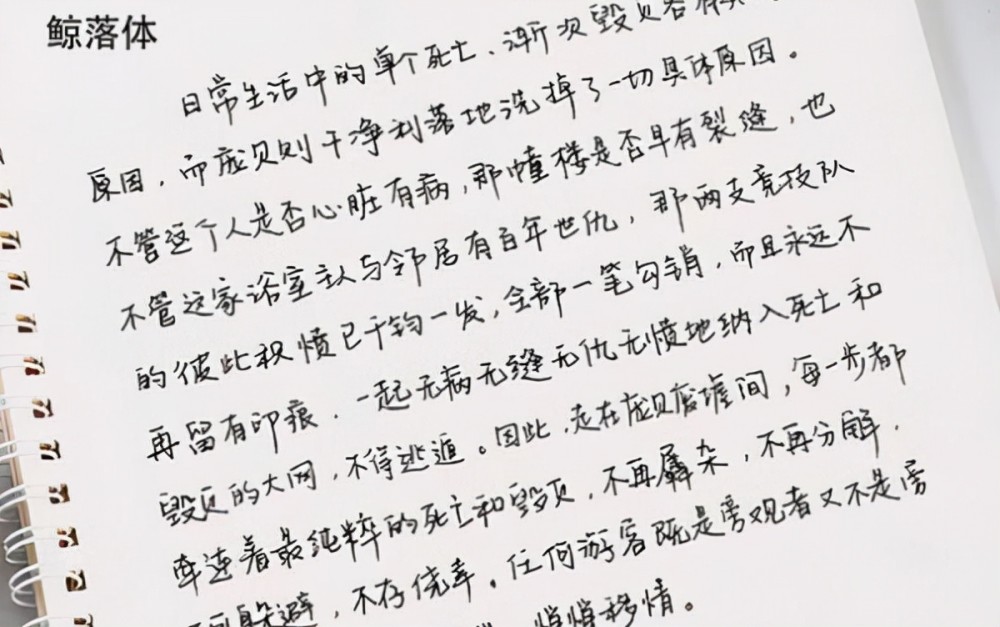 鲸落体
日常生活中的单个死亡、渐次毁灭各有
原因，而庞贝则干净利落地洗掉了一切具体原因。
不管这个人是否心脏有病，那幢楼是否早有裂缝，也
不管这家浴室主人与邻居有百年世仇，那两支竞技队
的彼此积愤已千钧一发，全部一笔勾销，而且永远不
再留有印痕，一起无病无缝无仇无愤地纳入死亡和
毁灭的大网，不得逃遁。因此，走在庞贝废墟间，每一步都
牵连着最纯粹的死亡和毁灭，不再羼杂，不再分解，
躲避，不存侥幸。任何游客既是旁观者又不是旁
悄悄移情。